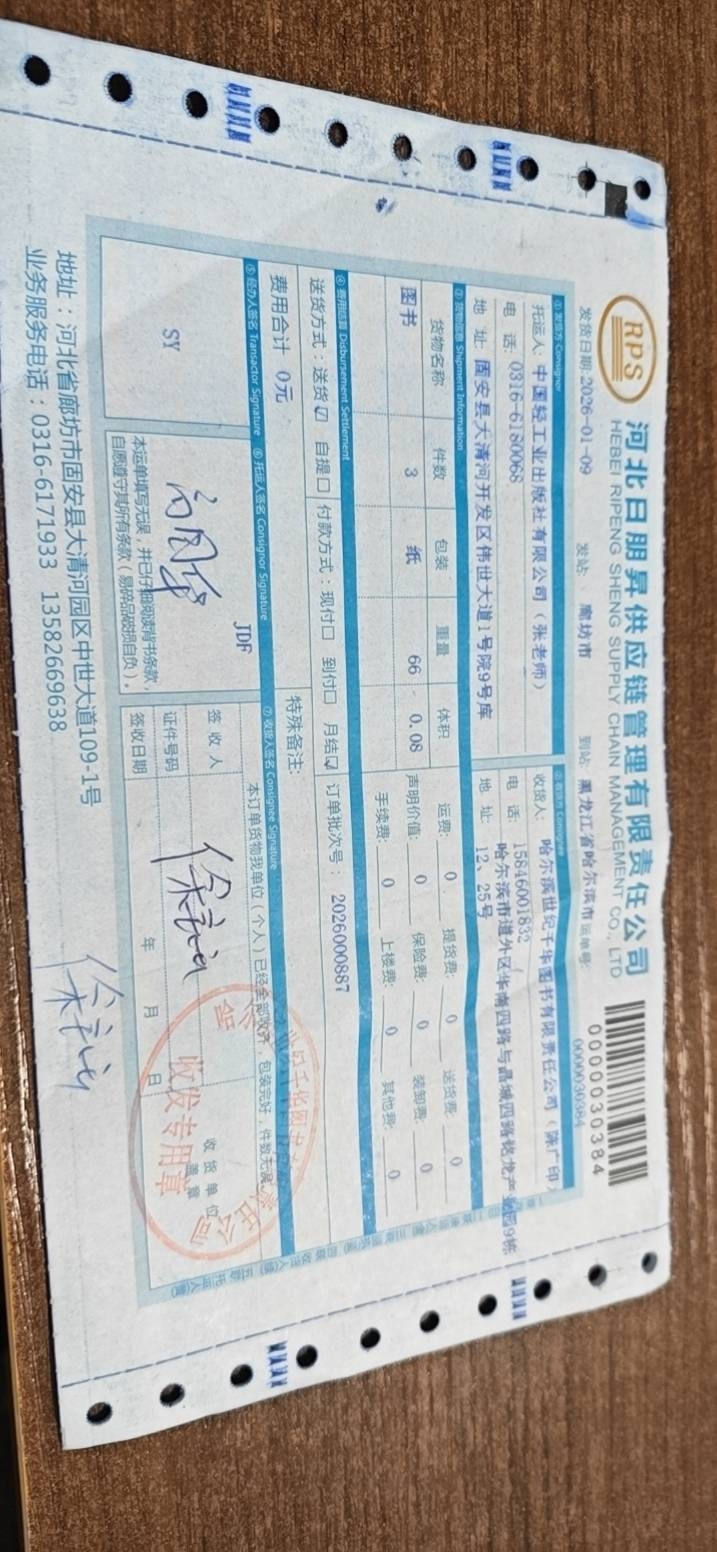 RPS
河北日朋昇供应链管理有限责任公司
HEBEI RIPENG SHENG SUPPLY CHAIN MANAGEMENT CO., LTD
0000030384
发货日期: 2026-01-09 发站: 廊坊市 到站: 黑龙江省哈尔滨市 运单号: 0000030384
①发货方 Consignor
托运人: 中国轻工业出版社有限公司（张老师）
电 话: 0316-6180068
地 址: 固安县大清河开发区伟世大道1号院9号库
收货人: 哈尔滨世纪千华图书有限责任公司（陈广印）
电 话: 15846001832
地 址: 哈尔滨市道外区华南四路与晶城四路铭龙产业园9栋
12、25号
③货物信息 Shipment Information
货物名称 件数 包装 重量 体积
图书 3 纸 66 0.08
运费: 0 提货费: 0 送货费: 0
声明价值: 0 保险费: 0 装卸费: 0
手续费: 0 上楼费: 0 其他费: 0
④费用结算 Disbursement Settlement
送货方式：送货☑ 自提□ 付款方式：现付□ 到付□ 月结☑ 订单批次号： 2026000887
费用合计 0元
特殊备注:
⑤经办人签名 Transactor Signature
SY
⑥托运人签名 Consignor Signature
JDF
本运单填写无误，并已仔细阅读背书条款，
自愿遵守其所有条款（易碎品破损自负）。
⑦收货人签名 Consignee Signature
本订单货物我单位（个人）已经全部收齐，包装完好，件数无误
签收人
证件号码
签收日期 年 月 日
收货单位
盖章
收发专用章
地址：河北省廊坊市固安县大清河园区中世大道109-1号
业务服务电话：0316-6171933 13582669638